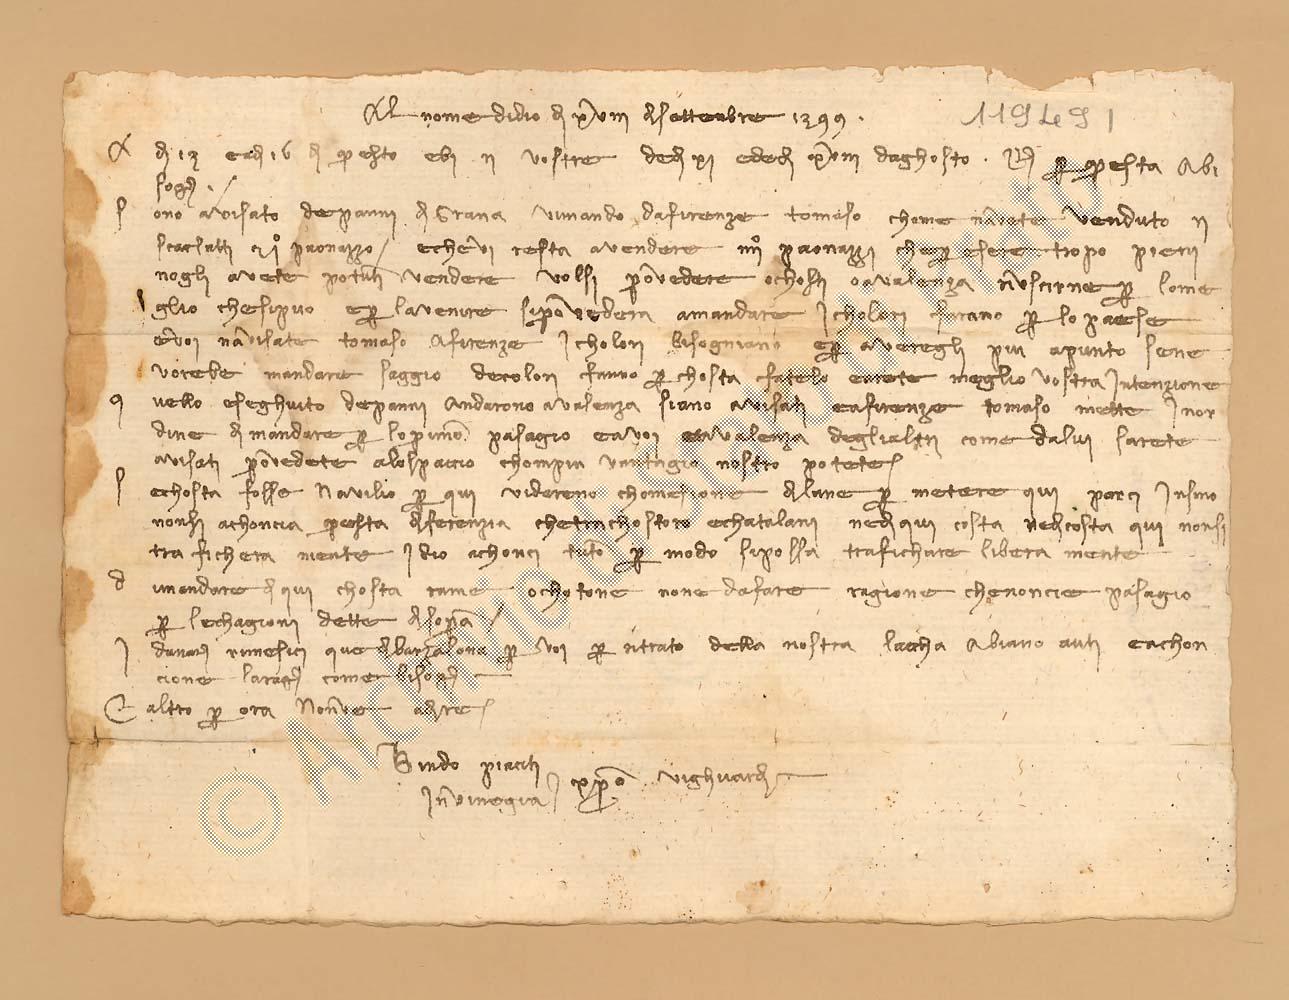 Al nome di dio di xviii di settenbre 1399.
119491
A di 13 e a di 16 di questo ebi ii vostre de di xi e de di xviii d aghosto. per questa a bi
sogni.
Sono avisato de panni di Grana vi mando da firenze tomaso chome n avete venduto ii
scarlatti paonazzo / e che vi resta a vendere paonazzi che per esere tropo pieni
no gli avete potuti vendere volsi provedere chosti o a valenza uscirne per lo me
glio che si può e per l avenire si provederà a mandare i cholori farano per lo paese
e voi n avisate tomaso a firenze i cholori bisogniano e per averegli più a punto se ne
vorebe mandare saggio de colori fanno per chosta fatelo e arete meglio vostra intenzione
quello e seghuito de panni andarono a valenza siano avisati e a firenze tomaso mette in or
dine di mandare per lo primo pasagio e a voi e a valenza degli altri come da lui sarete
avisati provedete a lo spaccio chon più vantagio nostro potete
S e chosta fosse navilio per qui videreno chomesione di lane per metere qui per ci insino
non si achoncia questa diferenzia che tra chostoro e chatalani né di qui costà né di costà qui non si
traficherà mente idio achonci tuto per modo si possa trafichare liberamente
d i mandare di qui chostà rame o chotone non è da fare ragione che non ci è pasagio
per le chagioni dette di sopra /
I danari rimesici que di barzalona per voi per ritrato della nostra laccha abiano auti e achon
cione la ragione come bisogna
E altro per ora non v è a dire
Bindo piaciti
in vinegia